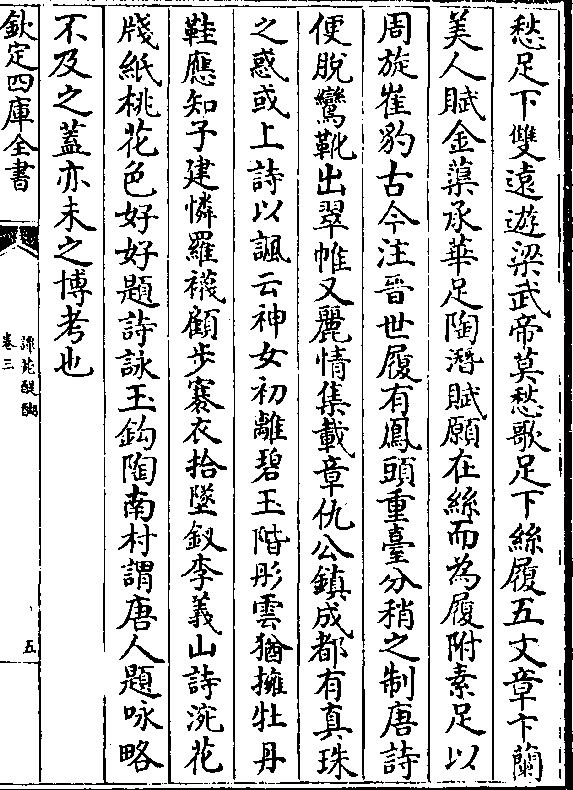 愁足下雙遠遊梁武帝莫愁歌足下絲履五文章卞蘭
美人賦金蕖承華足陶潛賦願在絲而為履附素足以
周旋崔豹古今注晉世履有鳳頭重臺分稍之制唐詩
便脫鸞靴出翠帷又麗情集載章仇公鎮成都有真珠
之惑或上詩以諷云神女初離碧玉階彤雲猶擁牡丹
鞋應知子建憐羅襪顧步褰衣拾墜釵李義山詩浣花
牋紙桃花色好好題詩詠玉鈎陶南村謂唐人題咏略
不及之蓋亦未之博考也
欽定四庫全書
譚苑醍醐
卷三
五